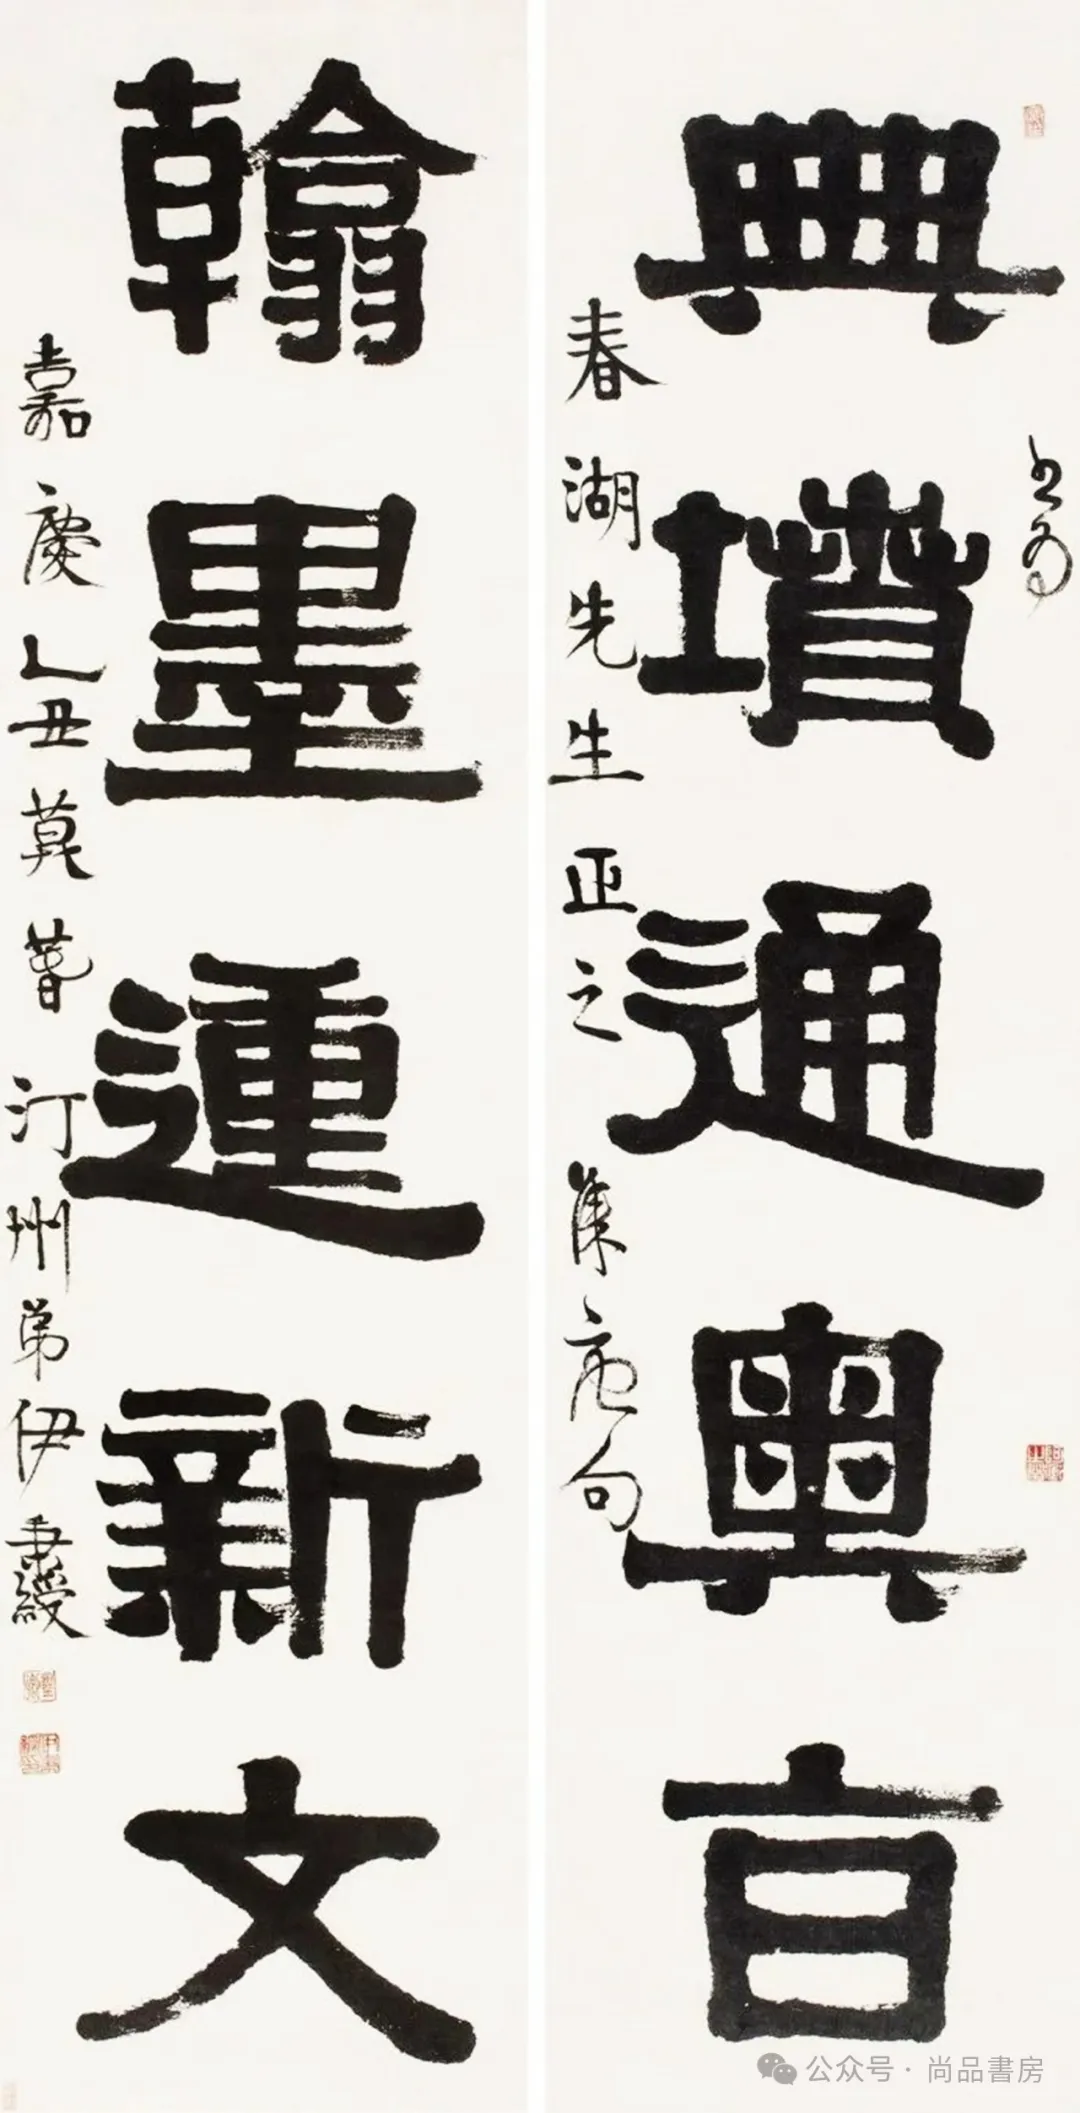 書為
典墳通奧旨
春湖先生正之 集唐句
翰墨運新文
嘉慶乙丑莫萅 汀州弟伊秉綬
公众号 · 尚品書房